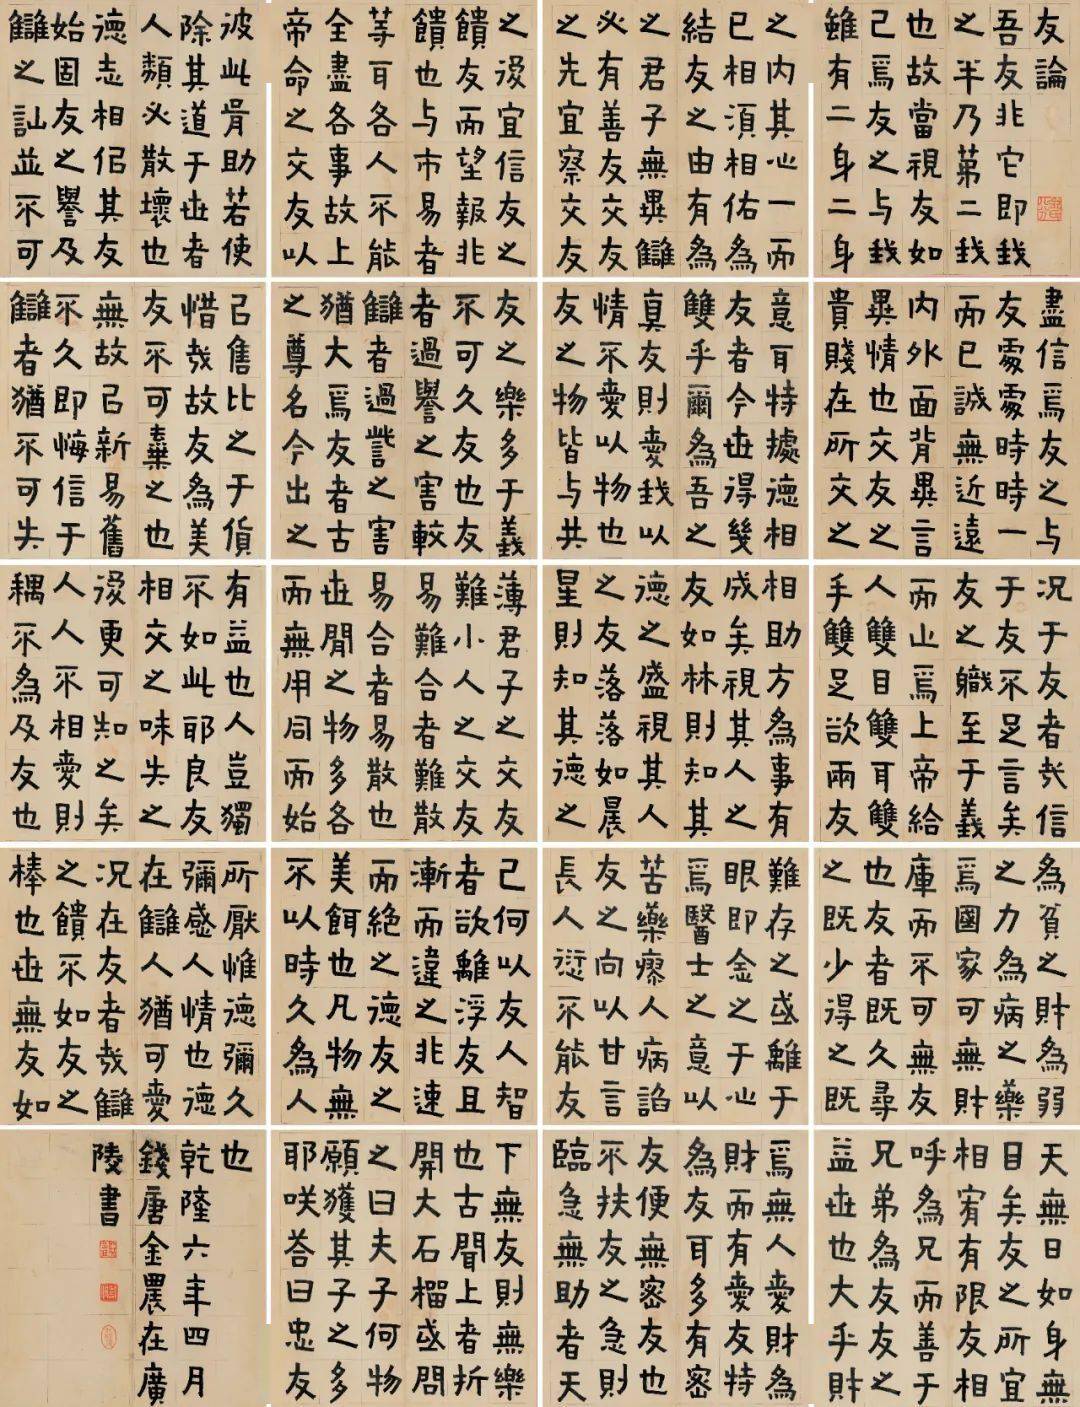 友論
吾友非它即我
之半乃第二我
也故當視友如
己焉友之与我
雖有二身二身
之内其心一而
已相須相佑為
結友之由有為
之君子無異讎
必有善友交友
之先宜察交友
之後宜信友之
饋友而望報非
饋也与市易者
等耳各人不能
全盡各事故上
帝命之交友以
彼此胥助若使
除其道于世者
人類必散壞也
德志相侣其友
始固友之譽及
讎之訕並不可
盡信焉友之与
友處處時時一
而已誠無近遠
内外面背異言
異情也交友之
貴賤在所交之
意耳特據德相
友者今世得幾
雙乎爾為吾之
真友則愛我以
情不愛以物也
友之物皆与共
友之樂多于義
不可久友也友
者過譽之害較
讎者過訾之害
猶大焉友者古
之尊名今出之
己售比之于貨
惜哉故友為美
友不可棄之也
無故己新易舊
不久即悔信于
讎者猶不可失
况于友者哉信
于友不足言矣
友之職至于義
而止焉上帝給
人雙目雙耳雙
手雙足欲兩友
相助方為事有
成矣視其人之
友如林則知其
德之盛視其人
之友落落如晨
星則知其德之
薄君子之交友
難小人之交友
易難合者難散
易合者易散也
世間之物多各
而無用同而始
有益也人豈獨
不如此耶良友
相交之味失之
後更可知之矣
人人不相愛則
耦不為及友也
為貧之財為弱
之力為病之藥
焉國家可無財
庫而不可無友
也友者既久尋
之既少得之既
難存之或離于
眼即金之于心
焉醫士之意以
苦藥瘳人病諂
友之向以甘言
長人愆不能友
己何以友人智
者欲離浮友且
漸而違之非速
而絕之德友之
美餌也凡物無
不以時久為人
所厭惟德彌久
彌感人情也德
在讎人猶可愛
况在友者哉讎
之饋不如友之
棒也世無友如
天無日如身無
目矣友之所宜
相宥有限友相
呼為兄而善于
兄弟為友友之
益世也大乎財
焉無人愛財為
財而有愛友特
為友耳多有密
友便無密友也
不扶友之急則
臨急無助者天
下無友則無樂
也古聞上者折
開大石榴或問
之曰夫子何物
願獲其子之多
耶咲荅曰忠友
也
乾隆六年四月
錢唐金農在廣
陵書